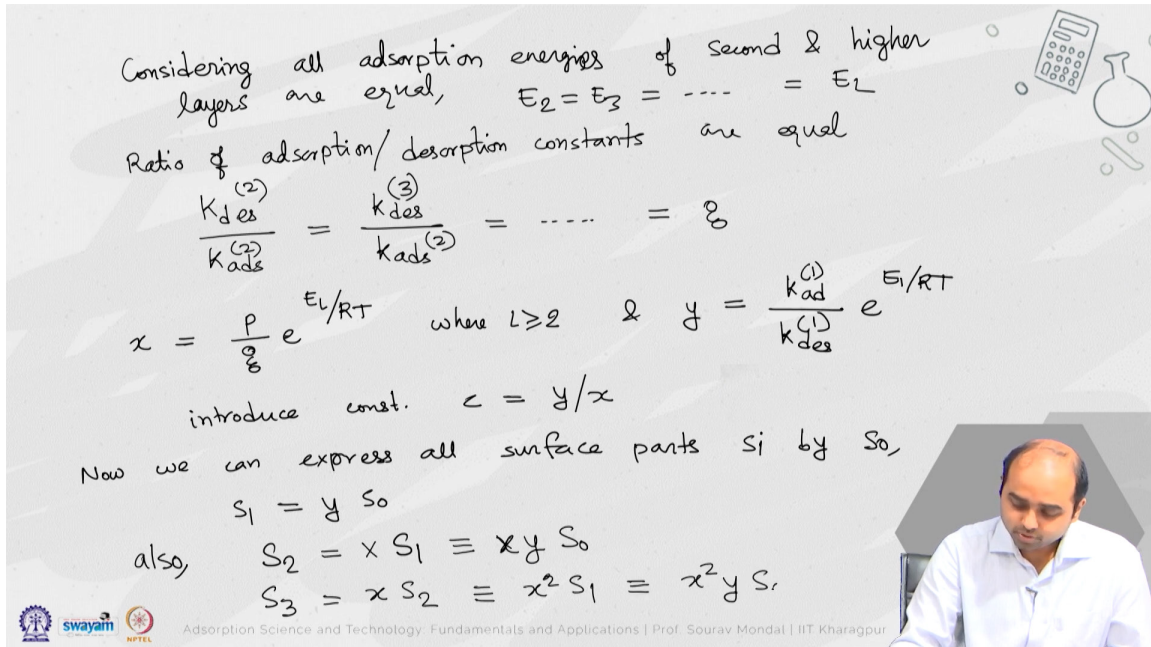 Considering all adsorption energies of second & higher
layers are equal, E2 = E3 = ---- = EL
Ratio of adsorption/desorption constants are equal
Kdes(2)/Kads(2) = kdes(3)/kads(2) = ----- = g
x = P/g e^EL/RT where L≥2 & y = kad(1)/kdes(1) e^E1/RT
introduce const. c = y/x
Now we can express all surface parts si by So,
S1 = y So
also, S2 = x S1 ≡ xy So
S3 = x S2 ≡ x² S1 ≡ x² y S
swayam
NPTEL
Adsorption Science and Technology: Fundamentals and Applications | Prof. Sourav Mondal | IIT Kharagpur